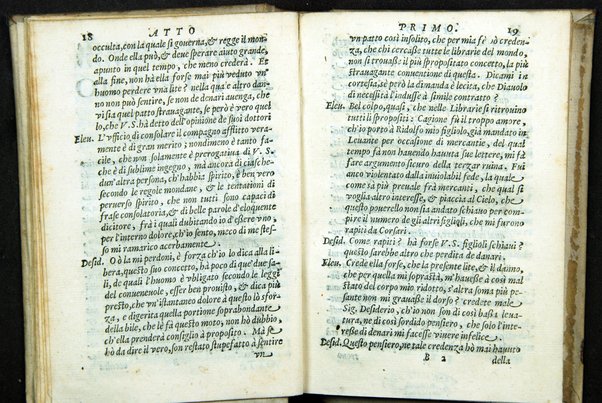 18 ATTO
occulta, con la quale si governa, & regge il mon-
do. Onde ella può, & deve sperare aiuto grande,
apunto in quel tempo, che meno crederà. Et
alla fine, non hà ella forse mai più veduto vn'
huomo perdere vna lite? nella qua'e altro dan-
no non può sentire, se non de denari auenga, che
vi sia quel patto strauagante, se però è vero quel
lo, che V.S. hà detto dell'opinione de suoi dottori
Eleu. L'vfficio di consolare il compagno afflitto vera-
mente è di gran merito; nondimeno è tanto fa-
cile, che non solamente è prerogatiua di V. S.
che è di sublime ingegno, mà ancora di ciasche-
dun'altra persona, ch'habbia spirito, è ben vero
secondo le regole mondane, & le tentationi di
peruerso spirito, che non tutti sono capaci di
frase consolatoria, & di belle parole d'eloquente
dicitore, frà i quali dubitando io d'essere vno,
per l'interno dolore, ch'io sento, meco di me stes-
so mi ramarico acerbamente.
Desid. O à la mi perdoni, è forza ch'io lo dica alla li-
bera, questo suo concetto, hà poco di que' due sa-
li, de quali l'huomo è vbligato secondo le leggi
del conueneuole, esser ben prouisto, & dica più
presto, che vn'istantaneo dolore à questo lo sfor-
za, e digerita quella portione soprabondante
della bile, che le fà questo moto, non hò dubbio,
ch'ella prenderà consiglio à proposito. Mà se
hò da dire il vero, son restato stupefatto à sentire
vn
PRIMO. 19
vn patto così insolito, che per mia fè io creden-
za, che chi cercasse tutte le librarie del mondo,
non si trouasse il più spropositato concetto, la più
strauagante conuentione di questa. Dicami in
cortesia, se però la dimanda è lecita, che Diauolo
di necessità l'indusse à simile contratto?
Eleu. Bel colpo, quasi, che nelle Librarie si ritrouino
tutti li spropositi: Cagione fù il troppo amore,
ch'io porto à Ridolfo mio figliolo, già mandato in
Leuante per occasione di mercantie, del qual
tempo fà non hauendo hauuta sue lettere, mi fà
fare argumento sicuro della terza ruina. Fui
anco violentato dalla inuiolabil fede, la quale
come sà più preuale frà mercanti, che qual si
voglia altro interesse, & piaccia al Cielo, che
questo pouerello non sia andato schiauo per com-
pire il numero de gli altri figlioli, che mi furono
rapiti da Corsari.
Desid. Come rapiti? hà forse V.S. figlioli schiaui?
questo sarebbe altro che perdita de danari.
Eleu. Crede ella forse, che la presente lite, & il danno,
che per quella mi soprastà, m'hauesse à così mal
stato del corpo mio ridotto, s'altra soma più pe-
sante non mi grauasse il dorso? credete male
Sig. Desiderio, ch'io non son di così bassa leua-
tura, ne di così sordido pensiero, che solo l'inte-
resse di denari mi facesse viuere infelice.
Desid. Questo pensiero, ne tale credenza hò mai hauuto
B 2 della